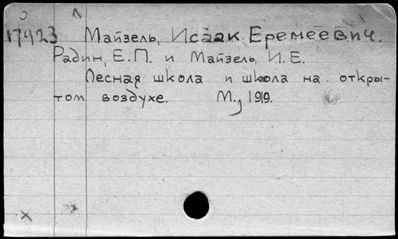 17423 Майзель, Исаак Еремеевич.
Радин, Е.П. и Майзель, И.Е.
Лесная школа и школа на откры-
том воздухе. М., 1919.